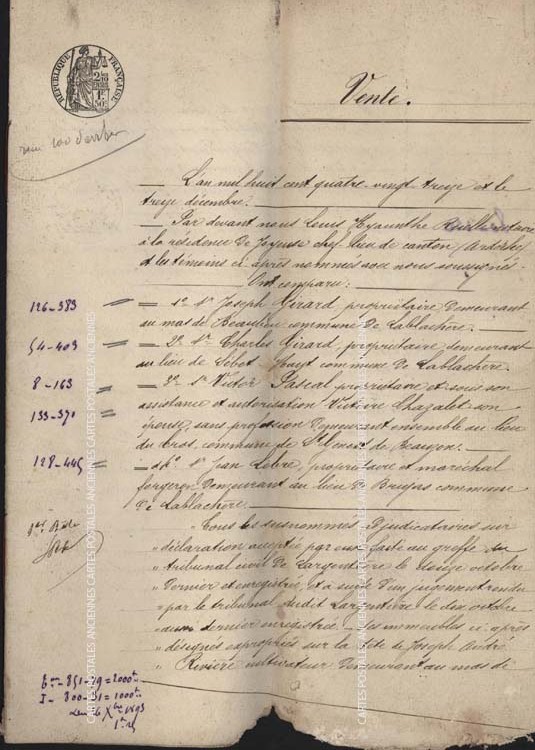 RÉPUBLIQUE FRANÇAISE
Vente.
L'an mil huit cent quatre-vingt treize et le
treize décembre.
Par devant nous Louis Hyacinthe notaire
à la résidence de Joyeuse chef-lieu de canton (Ardèche)
et les témoins ci-après nommés avec nous soussignés.
Ont comparu:
126-383
1º Sr Joseph Girard, propriétaire demeurant
au mas de Beaulieu commune de Lablachère.
54-403
2º Sr Charles Girard, propriétaire demeurant
au lieu de commune de Lablachère.
8-163
3º Sr Victor Pascal propriétaire et sous son
assistance et autorisation Victoire Chazalet son
133-370
épouse, sans profession demeurant ensemble au lieu
du Cros, commune de St Genest de Beauzon.
128-445
4º Sr Jean propriétaire et maréchal
forgeron demeurant au lieu de commune
de Lablachère.
Tous les susnommés adjudicataires sur
" déclaration acceptée par eux faite au greffe du
" tribunal civil de Largentière le octobre
" dernier enregistrée, et à suite d'un jugement rendu
" par le tribunal dudit Largentière le dix octobre
" aussi dernier enregistré. Les immeubles ci-après
" désignés expropriés sur la tête de Joseph André
" Rivière cultivateur demeurant au mas de
851-29=2000
I-800-31=1000
1893
CARTES POSTALES ANCIENNES CARTES POSTALES ANCIENNES
CARTES POSTALES ANCIENNES CARTES POSTALES ANCIENNES